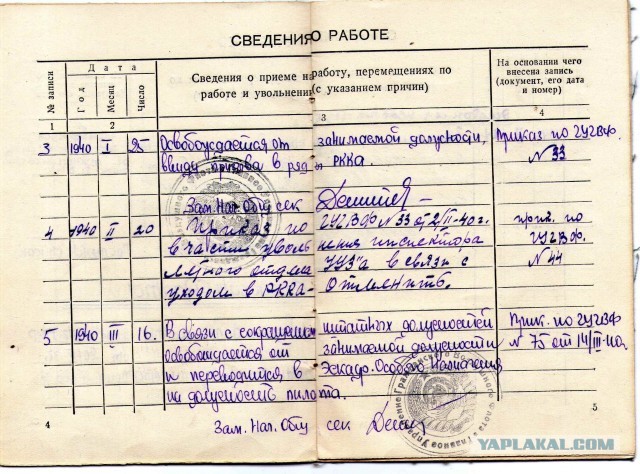 СВЕДЕНИЯ О РАБОТЕ
№ записи
Дата
Год
Месяц
Число
Сведения о приеме на работу, перемещениях по
работе и увольнении (с указанием причин)
На основании чего
внесена запись
(документ, его дата
и номер)
1 2 3 4
3 1940 I 25 Освобождается от занимаемой должности, Приказ по ГУГВФ
ввиду призыва в ряд. РККА. N 33
Зам. Нач. Общ сек
4 1940 II 20 Приказ по ГУГВФ N 33 от 2/II-40г. прик. по
в части увольнения инспектора ГУГВФ.
летного отдела УУЗ'а в связи с N 44
уходом в РККА- Отменить.
5 1940 III 16. В связи с сокращением штатных должностей Прик. по ГУГВФ
освобождается от занимаемой должности N 75 от 14/III-40г.
и переводится в Эскадр. Особого Назначения
на должность пилота.
Зам. Нач. Общ сек
4 5
YAPLAKAL.COM